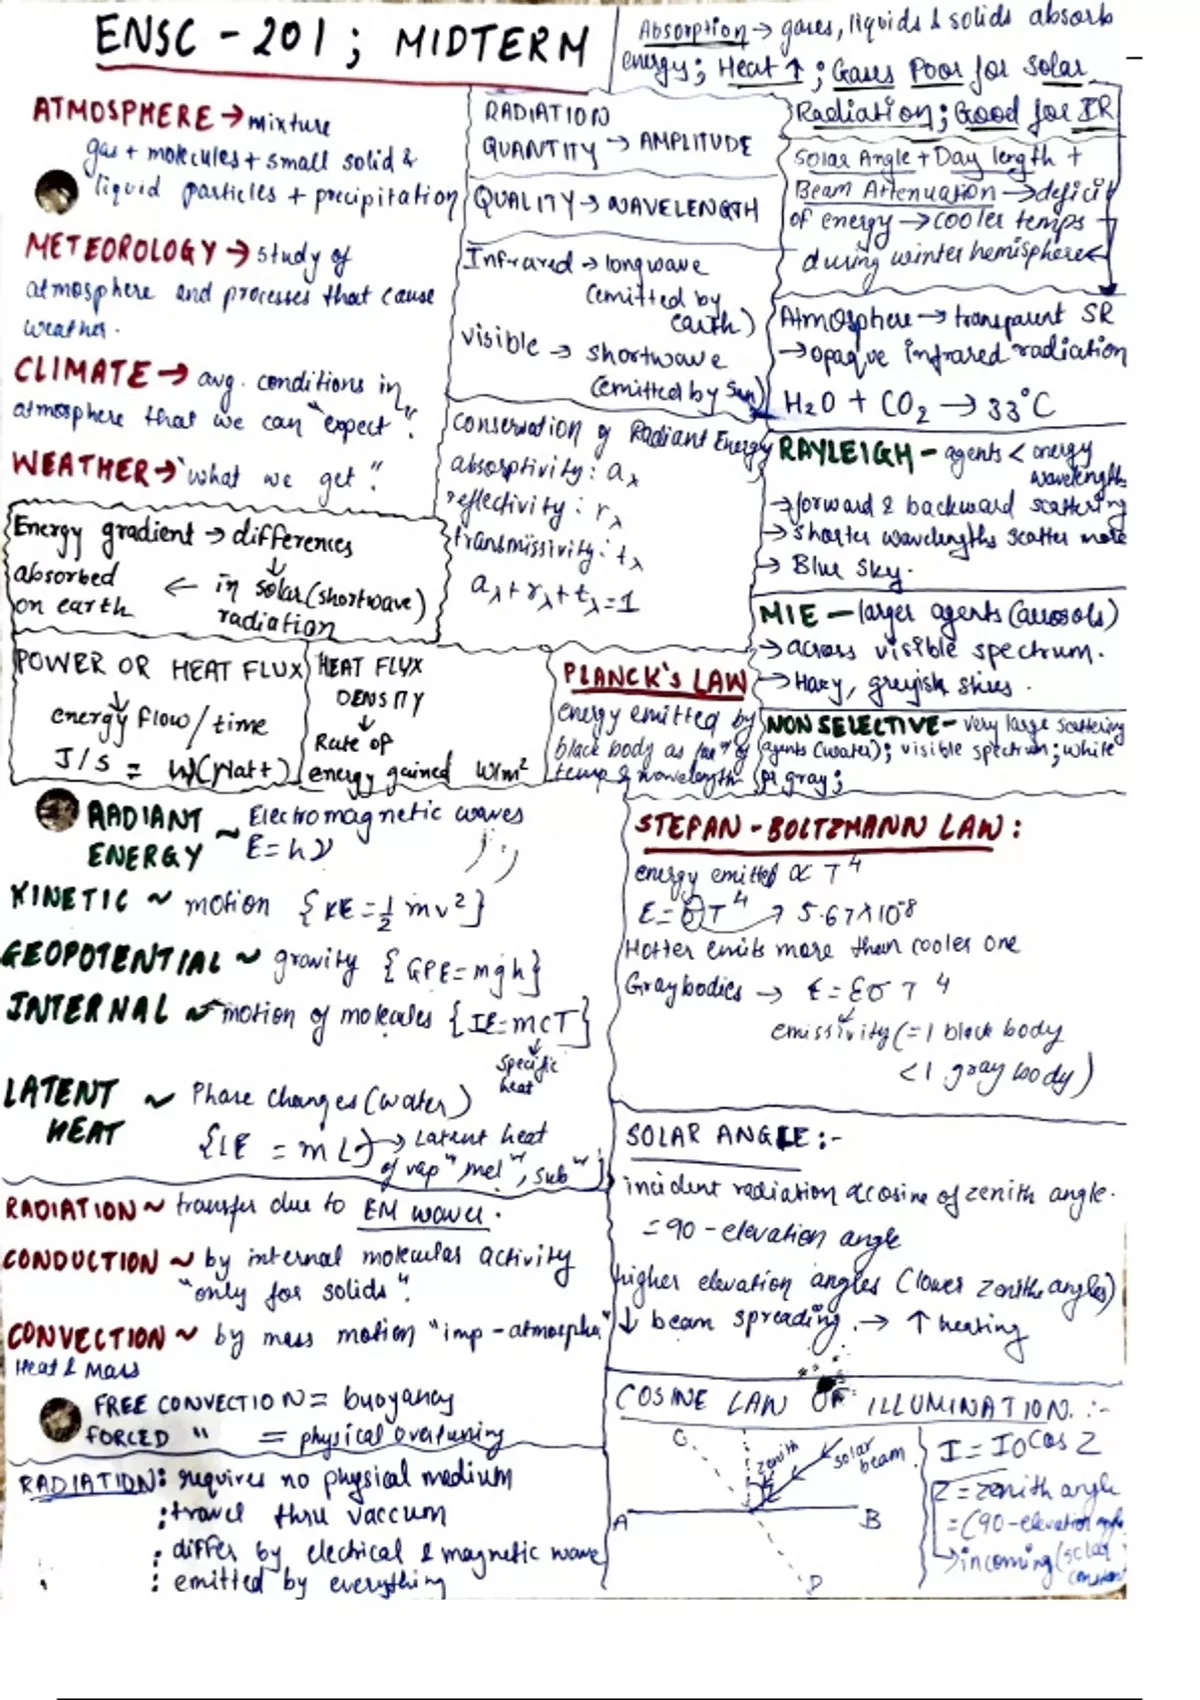 ENSC - 201 ; MIDTERM
Absorption → gases, liquids & solids absorb
energy; Heat ↑ ; Gases Poor for solar
Radiation; Good for IR
ATMOSPHERE → mixture
gas + molecules + small solid &
liquid particles + precipitation
METEOROLOGY → study of
atmosphere and processes that cause
weather.
CLIMATE → avg. conditions in
atmosphere that we can "expect".
WEATHER → "what we get".
Energy gradient → differences
↓
absorbed ← in solar (shortwave)
on earth radiation
POWER OR HEAT FLUX
↓
energy flow / time
J/s = W (Watt)
HEAT FLUX
DENSITY
↓
Rate of
energy gained W/m²
RADIATION
QUANTITY → AMPLITUDE
QUALITY → WAVELENGTH
Infrared → longwave
(emitted by
earth)
visible → shortwave
(emitted by sun)
Conservation of Radiant Energy
absorptivity : aλ
reflectivity : rλ
transmissivity : tλ
aλ + rλ + tλ = 1
PLANCK's LAW
energy emitted by
black body as of
temp & wavelength
Solar Angle + Day length +
Beam Attenuation → deficit
of energy → cooler temps
during winter hemisphere
Atmosphere → transparent SR
→ opaque infrared radiation
H₂O + CO₂ → 33°C
RAYLEIGH - agents < energy
wavelengths
→ forward & backward scattering
→ shorter wavelengths scatter more
→ Blue sky.
MIE - larger agents (aerosols)
→ across visible spectrum.
→ Hazy, greyish skies.
NON SELECTIVE - very large scattering
agents (water); visible spectrum; white
or gray;
RADIANT ~ Electromagnetic waves
ENERGY E = hν
KINETIC ~ motion {KE = ½ mv²}
GEOPOTENTIAL ~ gravity {GPE = mgh}
INTERNAL ~ motion of molecules {IE = mcT}
↓
specific
heat
LATENT ~ Phase changes (water)
HEAT {LE = mL} → Latent heat
of vapⁿ, melⁿ, subⁿ
RADIATION ~ transfer due to EM waves.
CONDUCTION ~ by internal molecular activity
"only for solids".
CONVECTION ~ by mass motion "imp-atmosphe"
Heat & Mass
FREE CONVECTION = buoyancy
FORCED " = physical overturning
RADIATION: requires no physical medium
: travel thru vaccum
: differ by electrical & magnetic wave
: emitted by everything
STEFAN - BOLTZMANN LAW :
energy emitted ∝ T⁴
E = σT⁴ → 5.67×10⁻⁸
Hotter emits more than cooler one
Graybodies → E = εσT⁴
emissivity (= 1 black body
< 1 gray body)
SOLAR ANGLE :-
incident radiation ∝ cosine of zenith angle.
= 90 - elevation angle
higher elevation angles (lower zenith angles)
↓ beam spreading. → ↑ heating
COSINE LAW OF ILLUMINATION. :-
C
zenith
solar
beam.
Z
A
B
D
I = I₀ Cos Z
Z = zenith angle
= (90 - elevation angle
→ incoming (solar
constant